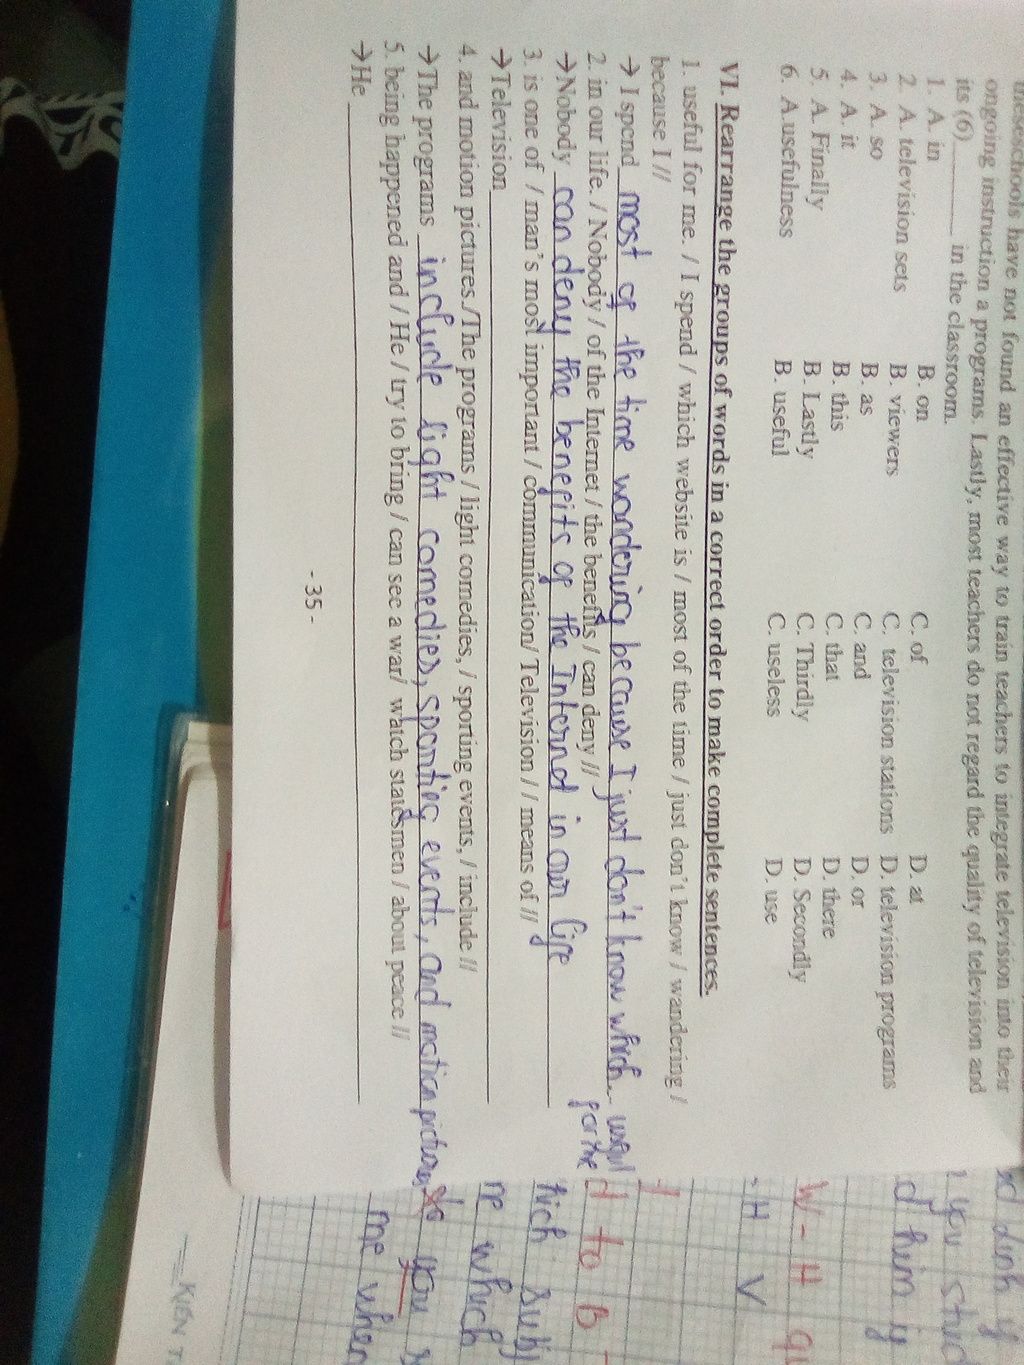 theseschools have not found an effective way to train teachers to integrate television into their
ongoing instruction a programs. Lastly, most teachers do not regard the quality of television and
its (6)______ in the classroom.
1. A. in B. on C. of D. at
2. A. television sets B. viewers C. television stations D. television programs
3. A. so B. as C. and D. or
4. A. it B. this C. that D. there
5. A. Finally B. Lastly C. Thirdly D. Secondly
6. A.usefulness B. useful C. useless D. use
VI. Rearrange the groups of words in a correct order to make complete sentences.
1. useful for me. / I spend / which website is / most of the time / just don't know / wandering /
because I //
→ I spend most of the time wandering because I just don't know which useful
for me
2. in our life. / Nobody / of the Internet / the benefits / can deny //
→Nobody can deny the benefits of the Internet in our life
3. is one of / man's most important / communication/ Television // means of //
→Television
4. and motion pictures./The programs / light comedies, / sporting events, / include //
→The programs include light comedies, sporting events, and motion pictures
5. being happened and / He / try to bring / can see a war/ watch statesmen / about peace //
→He
- 35 -
you
d him
W - H
- H V
d to B
hich subj
ne which
do you
me when
KIẾN